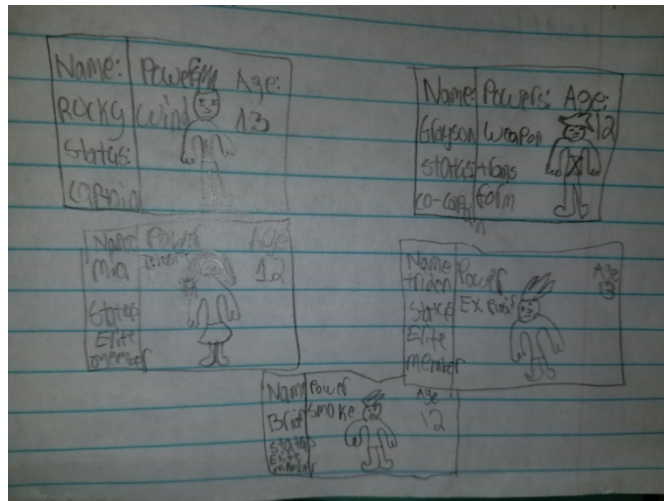 Name:
Rocky
Status:
captain
Powers:
wind
Age:
13
Name:
Grayson
status:
co-captain
Powers:
weapon
trans
form
Age:
12
Name
mia
Status
Elite
member
Power
Age
12
Name
triden
Status
Elite
member
Power
Age
13
Name
Status
Elite
member
Power
smoke
Age
12